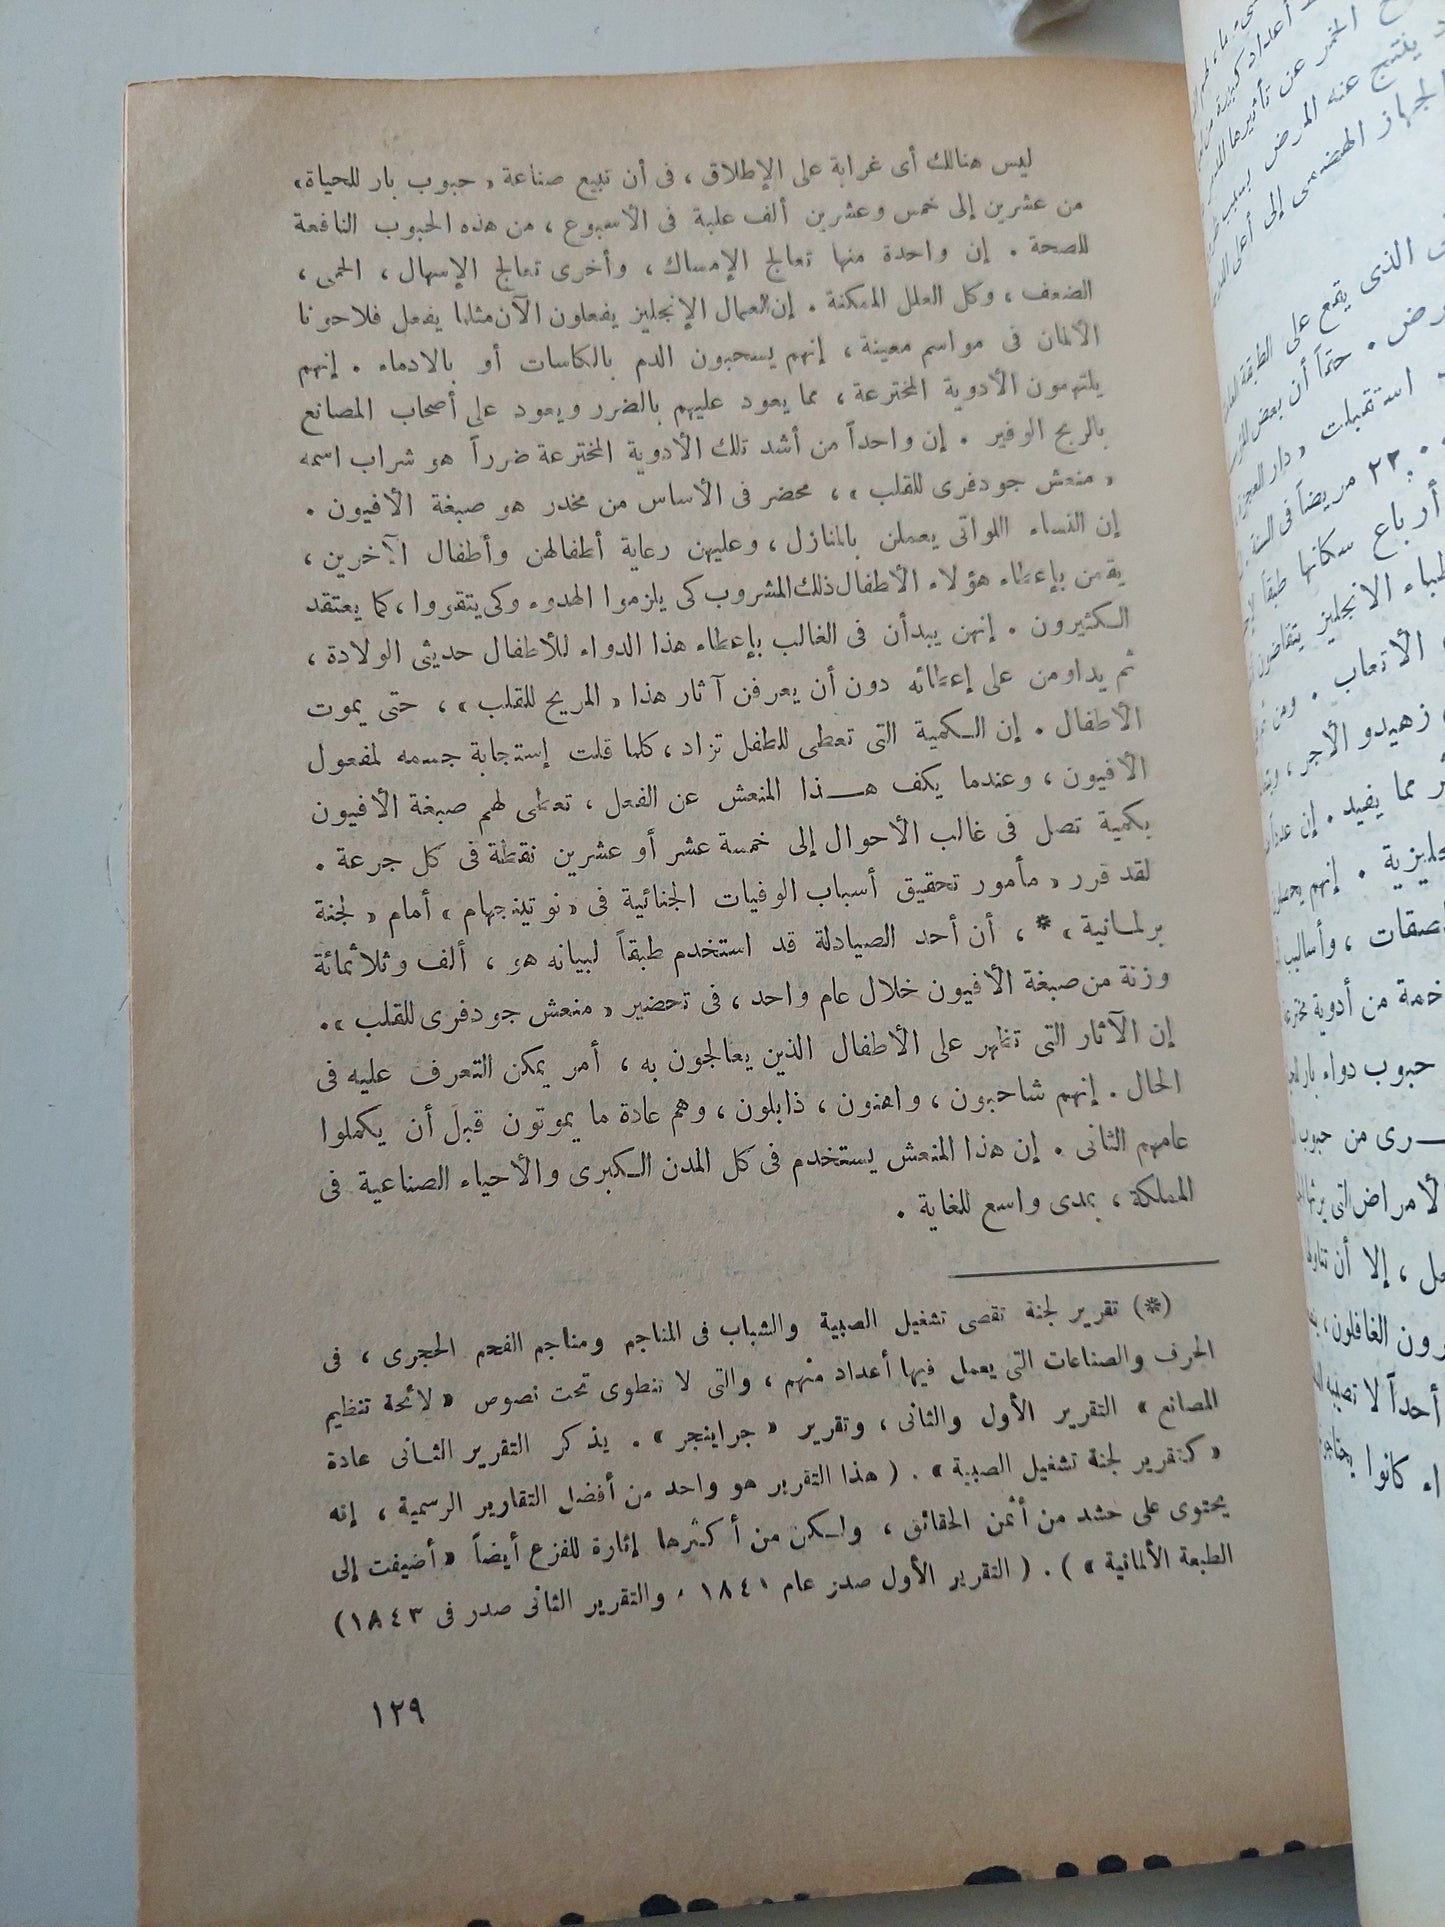 ليس هنالك أى غرابة على الإطلاق ، فى أن تبيع صناعة « حبوب بار للحياة »
من عشرين إلى خمس وعشرين ألف علبة فى الأسبوع ، من هذه الحبوب النافعة
للصحة . إن واحدة منها تعالج الإمساك ، وأخرى تعالج الإسهال ، الحمى ،
الضعف ، وكل العلل الممكنة . إن العمال الإنجليز يفعلون الآن مثلما يفعل فلاحونا
الألمان فى مواسم معينة ، إنهم يسحبون الدم بالكاسات أو بالادماء . إنهم
يلتهمون الأدوية المخترعة ، مما يعود عليهم بالضرر ويعود على أصحاب المصانع
بالربح الوفير . إن واحداً من أشد تلك الأدوية المخترعة ضرراً هو شراب اسمه
« منعش جودفرى للقلب » ، محضر فى الأساس من مخدر هو صبغة الأفيون .
إن النساء اللواتى يعملن بالمنازل ، وعليهن رعاية أطفالهن وأطفال الآخرين ،
يقمن بإعطاء هؤلاء الأطفال ذلك المشروب كى يلزموا الهدوء وكى يتقووا ، كما يعتقد
الكثيرون . إنهن يبدأن فى الغالب بإعطاء هذا الدواء للأطفال حديثى الولادة ،
ثم يداومن على إعطائه دون أن يعرفن آثار هذا « المريح للقلب » ، حتى يموت
الأطفال . إن الكمية التى تعطى للطفل تزاد ، كلما قلت إستجابة جسمه لمفعول
الأفيون ، وعندما يكف هـــذا المنعش عن الفعل ، تعطى لهم صبغة الأفيون
بكمية تصل فى غالب الأحوال إلى خمسة عشر أو عشرين نقطة فى كل جرعة .
لقد قرر « مأمور تحقيق أسباب الوفيات الجنائية فى « نوتينجهام » أمام « لجنة
برلمانية » * ، أن أحد الصيادلة قد استخدم طبقاً لبيانه هو ، ألف وثلاثمائة
وزنة من صبغة الأفيون خلال عام واحد ، فى تحضير « منعش جودفرى للقلب » .
إن الآثار التى تظهر على الأطفال الذين يعالجون به ، أمر يمكن التعرف عليه فى
الحال . إنهم شاحبون ، واهنون ، ذابلون ، وهم عادة ما يموتون قبل أن يكملوا
عامهم الثانى . إن هذا المنعش يستخدم فى كل المدن الكبرى والأحياء الصناعية فى
المملكة ، بمدى واسع للغاية .
(*) تقرير لجنة تقصى تشغيل الصبية والشباب فى المناجم ومناجم الفحم الحجرى ، فى
الحرف والصناعات التى يعمل فيها أعداد منهم ، والتى لا تنطوى تحت نصوص « لائحة تنظيم
المصانع » التقرير الأول والثانى ، وتقرير « جراينجر » . يذكر التقرير الثانى عادة
« كتقرير لجنة تشغيل الصبية » . ( هذا التقرير هو واحد من أفضل التقاوير الرسمية ، إنه
يحتوى على حشد من أثمن الحقائق ، ولكن من أكثرها إثارة للفزع أيضاً « أضيفت إلى
الطبعة الألمانية » ) . ( التقرير الأول صدر عام ١٨٤١ ، والتقرير الثانى صدر فى ١٨٤٣ )
١٢٩